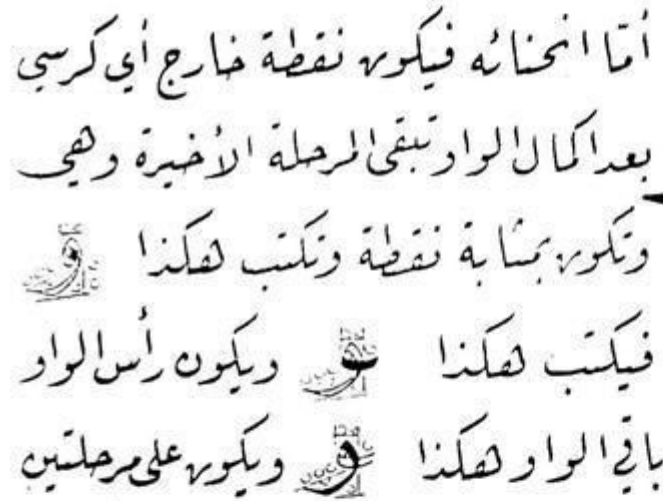 أمّا انحنائه فيكون نقطة خارج أي كرسي
بعد اكمال الواو تبقى المرحلة الأخيرة وهي
وتكون بمثابة نقطة وتكتب هكذا
فيكتب هكذا ويكون رأس الواو
باقي الواو هكذا ويكون على مرحلتين